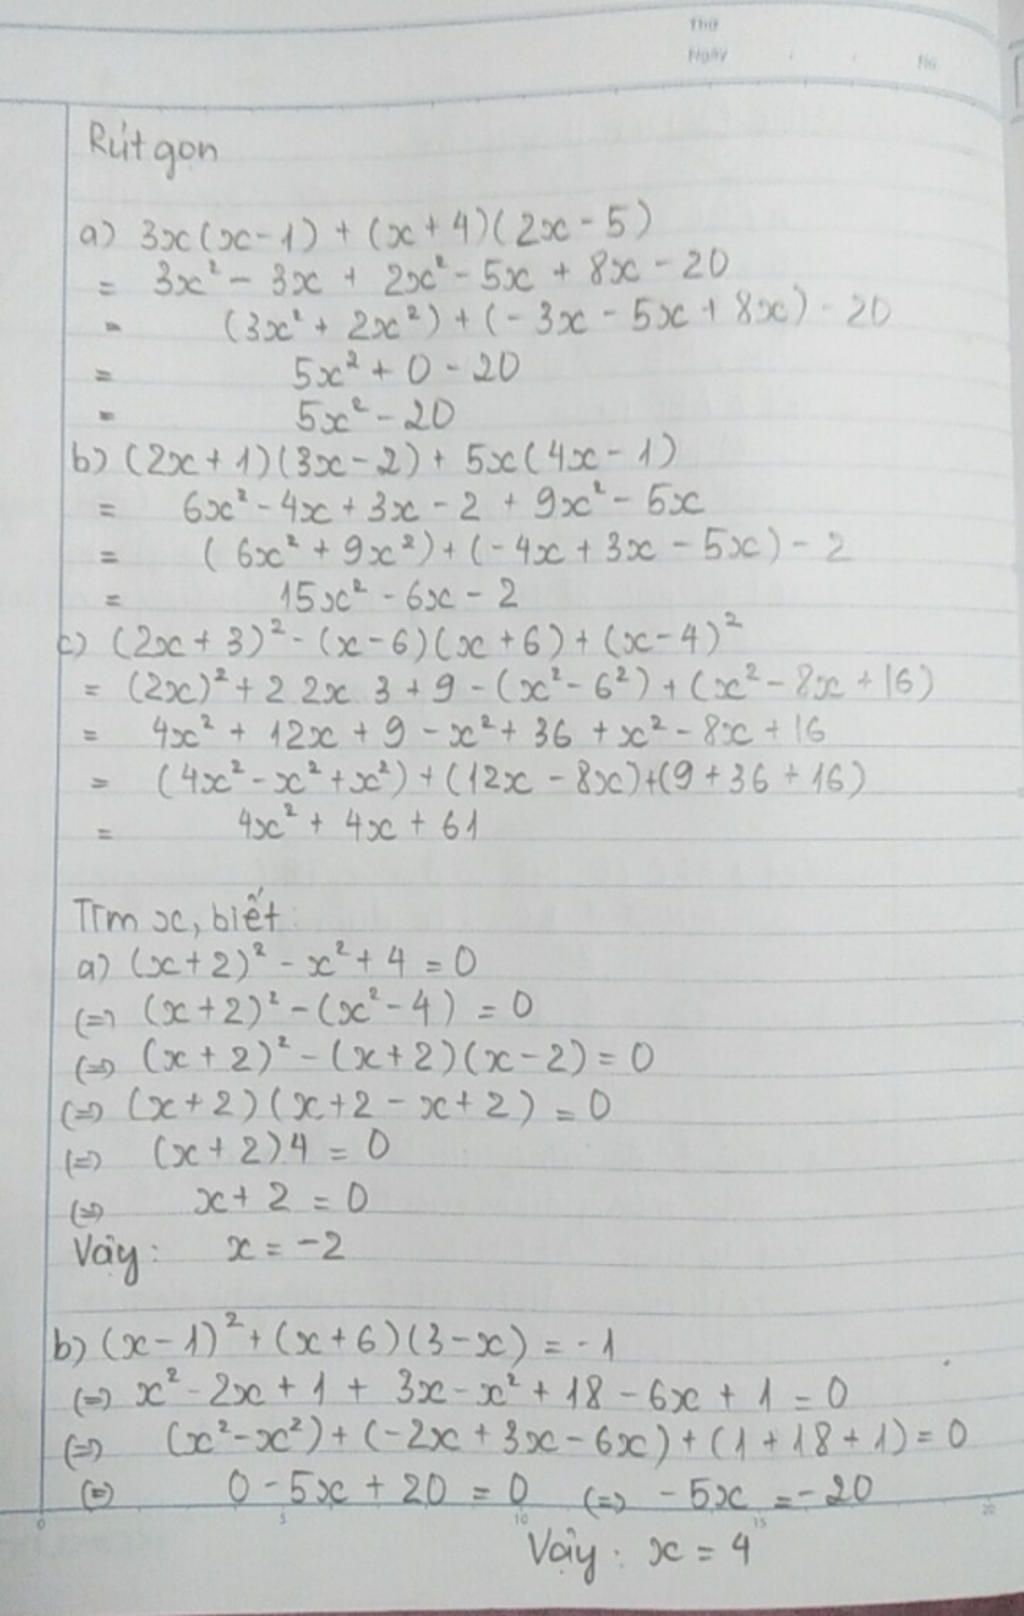 Thứ
Ngày No.
Rút gọn
a) 3x(x-1) + (x+4)(2x-5)
= 3x² - 3x + 2x² - 5x + 8x - 20
= (3x² + 2x²) + (-3x - 5x + 8x) - 20
= 5x² + 0 - 20
= 5x² - 20
b) (2x+1)(3x-2) + 5x(4x-1)
= 6x² - 4x + 3x - 2 + 9x² - 5x
= (6x² + 9x²) + (-4x + 3x - 5x) - 2
= 15x² - 6x - 2
c) (2x+3)² - (x-6)(x+6) + (x-4)²
= (2x)² + 2.2x.3 + 9 - (x² - 6²) + (x² - 8x + 16)
= 4x² + 12x + 9 - x² + 36 + x² - 8x + 16
= (4x² - x² + x²) + (12x - 8x) + (9 + 36 + 16)
= 4x² + 4x + 61
Tìm x, biết:
a) (x+2)² - x² + 4 = 0
(=) (x+2)² - (x² - 4) = 0
(=) (x+2)² - (x+2)(x-2) = 0
(=) (x+2)(x+2-x+2) = 0
(=) (x+2).4 = 0
(=) x+2 = 0
Vậy: x = -2
b) (x-1)² + (x+6)(3-x) = -1
(=) x² - 2x + 1 + 3x - x² + 18 - 6x + 1 = 0
(=) (x² - x²) + (-2x + 3x - 6x) + (1 + 18 + 1) = 0
(=) 0 - 5x + 20 = 0 (=) -5x = -20
0 5 10 15 20
Vậy: x = 4